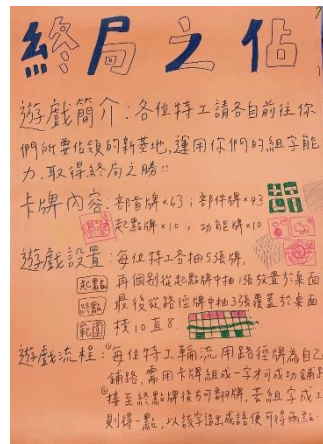 終局之佔
遊戲簡介:各位特工請各自前往你
們所要佔領的新基地,運用你們的組字能
力,取得終局之勝!!
卡牌內容:部首牌×63;部件牌×43
起點牌×10;功能牌×10
遊戲設置:每位特工各抽5張牌,
起點 再個別從起點牌中抽1張放置於桌面
終點 最後從路徑牌中抽3張覆蓋於桌面
範圍 橫10直8
遊戲流程:①每位特工輪流用路徑牌為自己
鋪路,需用卡牌組成一字才可成功鋪路
②接至終點牌後方可翻牌,若組字成工
則得一點,以該字造出成語便可得兩點.